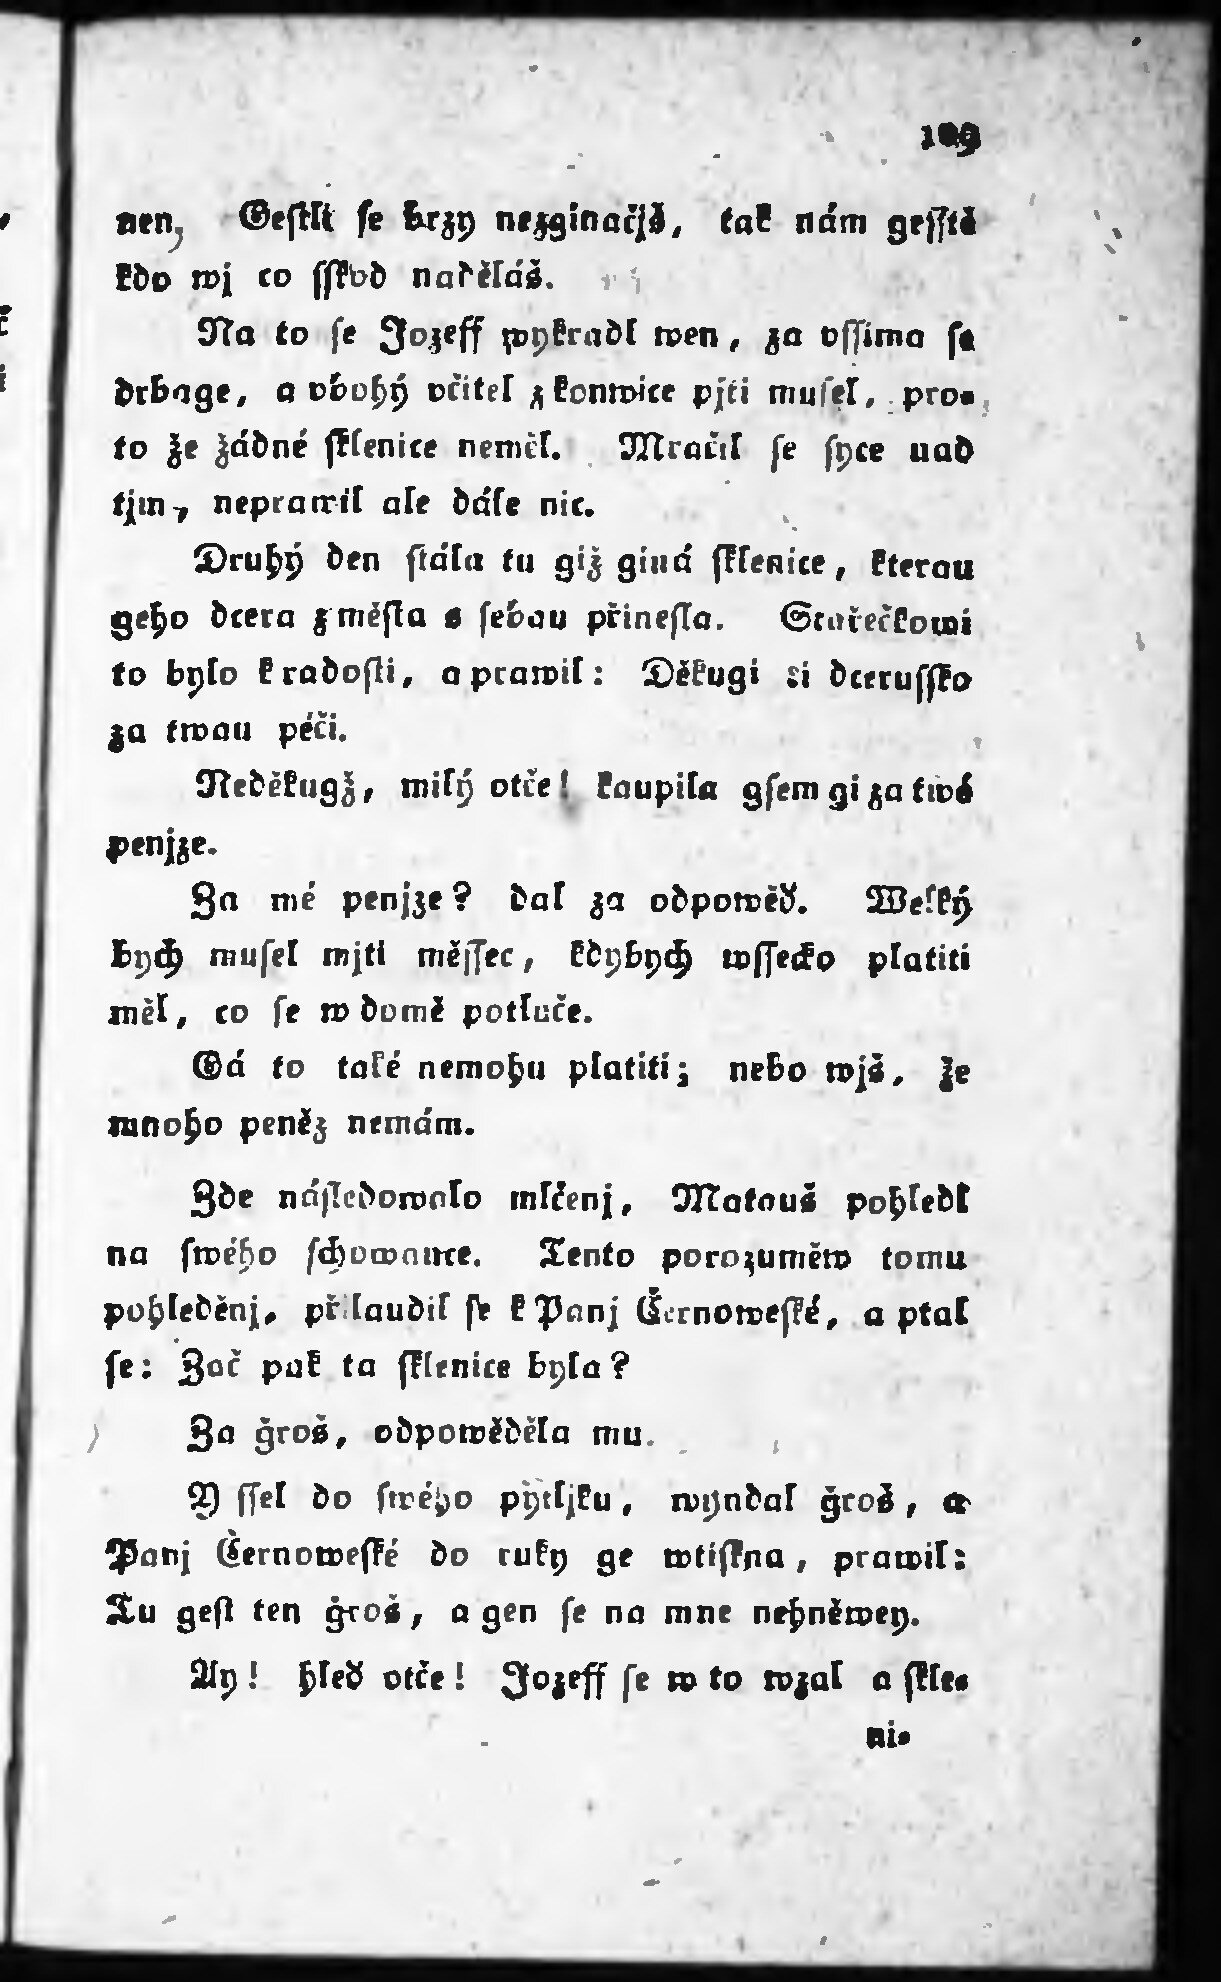 109
nen, Gestli se brzy nezginačjš, tak nám gesstě
kdo wj co sskod naděláš.
Na to se Jozeff wykradl wen, za vssima se
drbage, a vbohý včitel z konwice pjti musel, pro-
to že žádné sklenice neměl. Mračil se syce nad
tjm, neprawil ale dále nic.
Druhý den stála tu giž giná sklenice, kterau
geho dcera z města s sebau přinesla. Stařečkowi
to bylo k radosti, a prawil: Děkugi si dcerussko
za twau péči.
Neděkugž, milý otče! kaupila gsem gi za twé
penjze.
Za mé penjze? dal za odpowěď. Welký
bych musel mjti měssec, kdybych wssecko platiti
měl, co se w domě potluče.
Gá to také nemohu platiti; nebo wjš, že
mnoho peněz nemám.
Zde následowalo mlčenj, Matauš pohledl
na swého schowance. Tento porozuměw tomu
pohleděnj, přilaudil se k Panj Černoweské, a ptal
se: Zač pak ta sklenice byla?
Za ğroš, odpowěděla mu.
Y ssel do swého pytljku, wyndal ğroš, a
Panj Černoweské do ruky ge wtiskna, prawil:
Tu gest ten ğroš, a gen se na mne nehněwey.
Ay! hleď otče! Jozeff se w to wzal a skle-
ni-